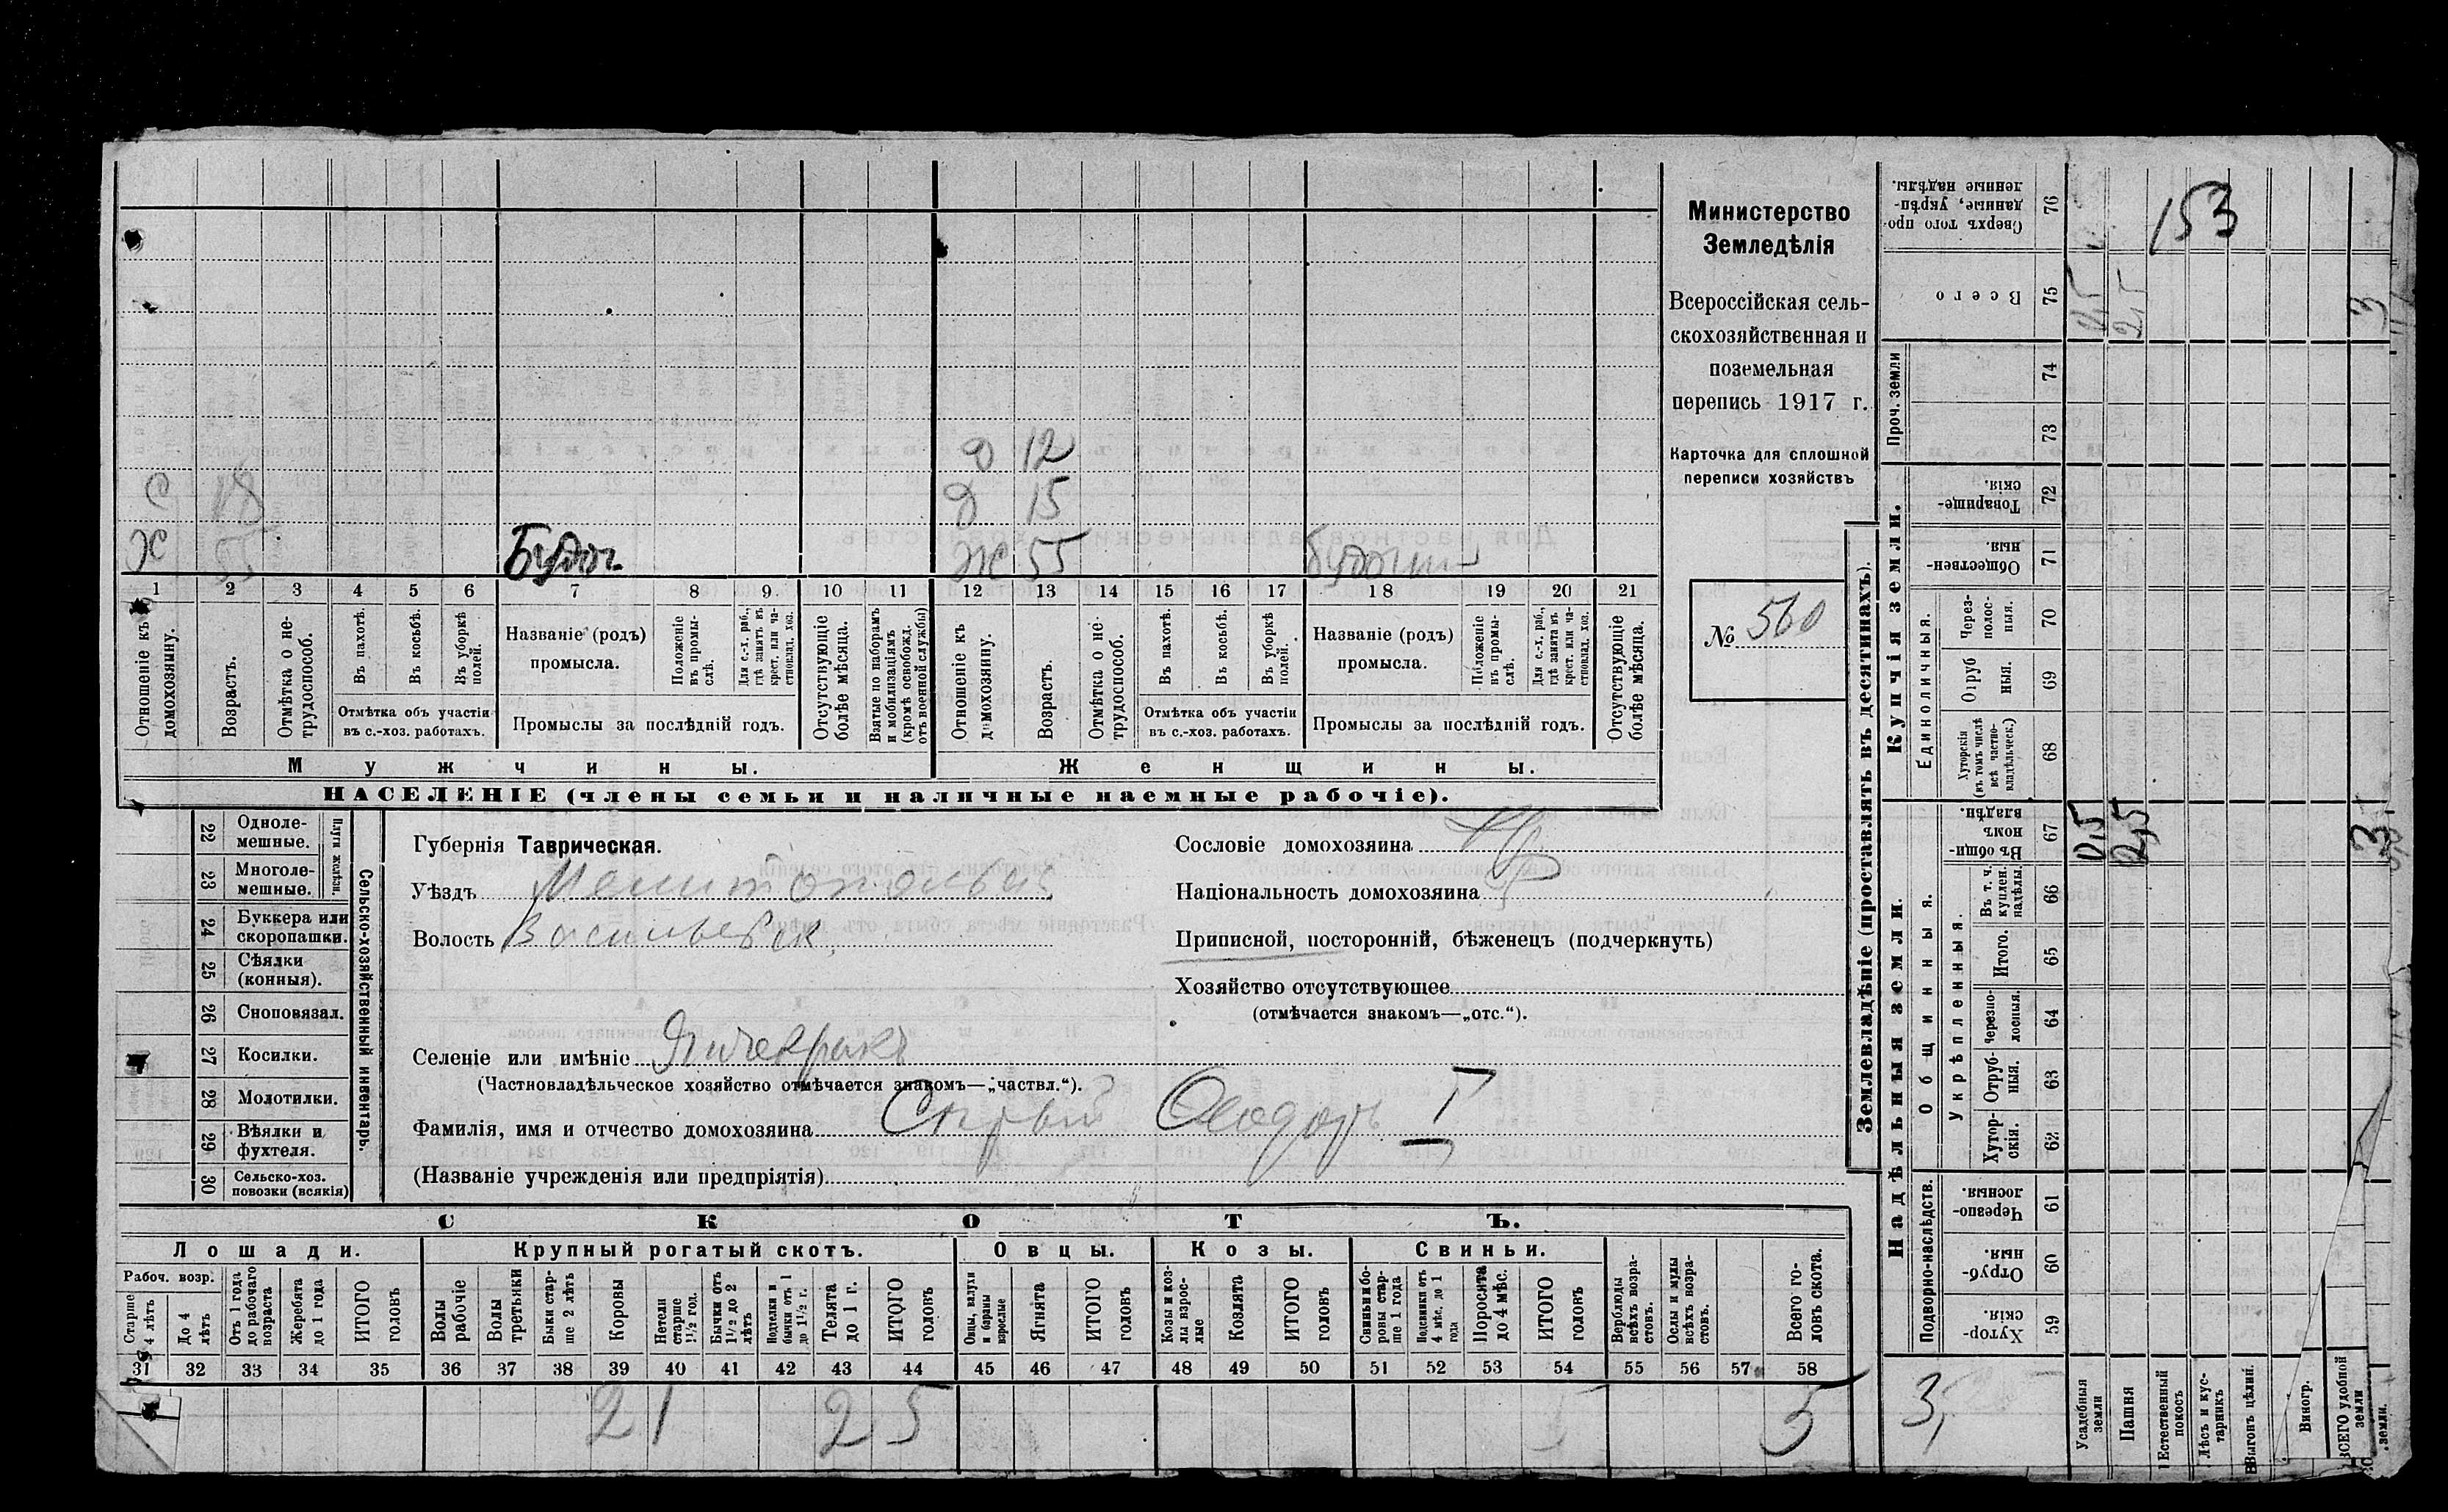 Министерство
Земледѣлія
Всероссійская сель-
скохозяйственная и
поземельная
перепись 1917 г.
Карточка для сплошной
переписи хозяйствъ
№ 560
Д 12
Д 15
Ж 55
С 18
Х 55
1 2 3 4 5 6 7 8 9 10 11 12 13 14 15 16 17 18 19 20 21
Отношеніе къ домохозяину.
Возрастъ.
Отмѣтка о не-трудоспособ.
Въ пахотѣ.
Въ косьбѣ.
Въ уборкѣ полей.
Отмѣтка объ участіи
въ с.-хоз. работахъ.
Названіе (родъ)
промысла.
Положеніе въ промы-слѣ.
Для с.-х. раб., гдѣ занятъ въ крест. или ча-стновлад. хоз.
Промыслы за послѣдній годъ.
Отсутствующіе болѣе мѣсяца.
Взятые по наборамъ и мобилизаціямъ (кромѣ освобожд. отъ военной службы)
Отношеніе къ домохозяину.
Возрастъ.
Отмѣтка о не-трудоспособ.
Въ пахотѣ.
Въ косьбѣ.
Въ уборкѣ полей.
Отмѣтка объ участіи
въ с.-хоз. работахъ.
Названіе (родъ)
промысла.
Положеніе въ промы-слѣ.
Для с.-х. раб., гдѣ занята въ крест. или ча-стновлад. хоз.
Промыслы за послѣдній годъ.
Отсутствующіе болѣе мѣсяца.
Мужчины.
Женщины.
НАСЕЛЕНІЕ (члены семьи и наличные наемные рабочіе).
Сельско-хозяйственный инвентарь.
Плуги желѣзн.
22 Одноле-мешные.
23 Многоле-мешные.
24 Буккера или скоропашки.
25 Сѣялки (конныя).
26 Сноповязал.
27 Косилки.
28 Молотилки.
29 Вѣялки и фухтеля.
30 Сельско-хоз. повозки (всякія)
Губернія Таврическая.
Уѣздъ Мелитопольск
Волость Васильевск
Селеніе или имѣніе Янчекракъ
(Частновладѣльческое хозяйство отмѣчается знакомъ—„частвл.“).
Фамилія, имя и отчество домохозяина Феодоръ I
(Названіе учрежденія или предпріятія)
Сословіе домохозяина
Національность домохозяина
Приписной, посторонній, бѣженецъ (подчеркнуть)
Хозяйство отсутствующее
(отмѣчается знакомъ—„отс.“).
СКОТЪ.
Лошади.
Крупный рогатый скотъ.
Овцы.
Козы.
Свиньи.
Рабоч. возр.
Старше 4 лѣтъ
До 4 лѣтъ
Отъ 1 года до рабочаго возраста
Жеребята до 1 года
ИТОГО головъ
Волы рабочіе
Волы третьяки
Быки стар-ше 2 лѣтъ
Коровы
Нетели старше 1½ год.
Бычки отъ 1½ до 2 лѣтъ
Подтелки и бычки отъ 1 до 1½ г.
Телята до 1 г.
ИТОГО головъ
Овцы, валухи и бараны взрослые
Ягнята
ИТОГО головъ
Козы и коз-лы взрос-лые
Козлята
ИТОГО головъ
Свиньи и бо-ровы стар-ше 1 года
Подсвинки отъ 4 мѣс. до 1 года
Поросята до 4 мѣс.
ИТОГО головъ
Верблюды всѣхъ возра-стовъ.
Ослы и мулы всѣхъ возра-стовъ.
Всего го-ловъ скота.
31 32 33 34 35 36 37 38 39 40 41 42 43 44 45 46 47 48 49 50 51 52 53 54 55 56 57 58
2 1 2 5 5
Землевладѣніе (проставлять въ десятинахъ).
Надѣльныя земли.
Купчія земли.
Проч. земли
Подворно-наслѣдств.
Общинныя.
Укрѣпленныя.
Единоличныя.
Сверхъ того про-данные, укрѣп-ленные надѣлы. 76
Всего 75
74
73
Товарище-скія. 72
Обществен-ныя. 71
Через-полос-ныя. 70
Отруб ныя. 69
Хуторскія (въ томъ числѣ всѣ частно-владѣльческ.) 68
Въ общи-номъ владѣн. 67
Въ т. ч. куплен. надѣлы. 66
Итого. 65
Черезпо-лосныя. 64
Отруб-ныя. 63
Хутор-скія. 62
Черезпо-лосныя. 61
Отруб-ныя 60
Хутор-скія. 59
153
0,5
2,5
3
0,5
2,5
3
3,
Усадебныя земли
Пашня
Естественный покосъ
Лѣсъ и кус-тарникъ
Выгонъ цѣлин.
Виногр.
ВСЕГО удобной земли
земли.